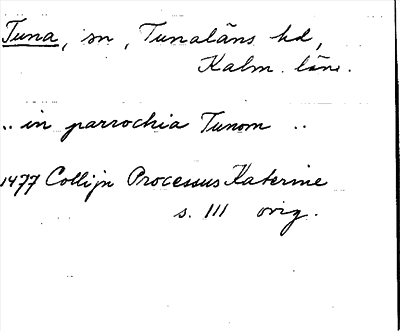 Tuna, sn, Tunaläns hd,
Kalm. län.
.. in parrochia Tunom ..
1477 Collijn Processus Katerine
s. 111 orig.